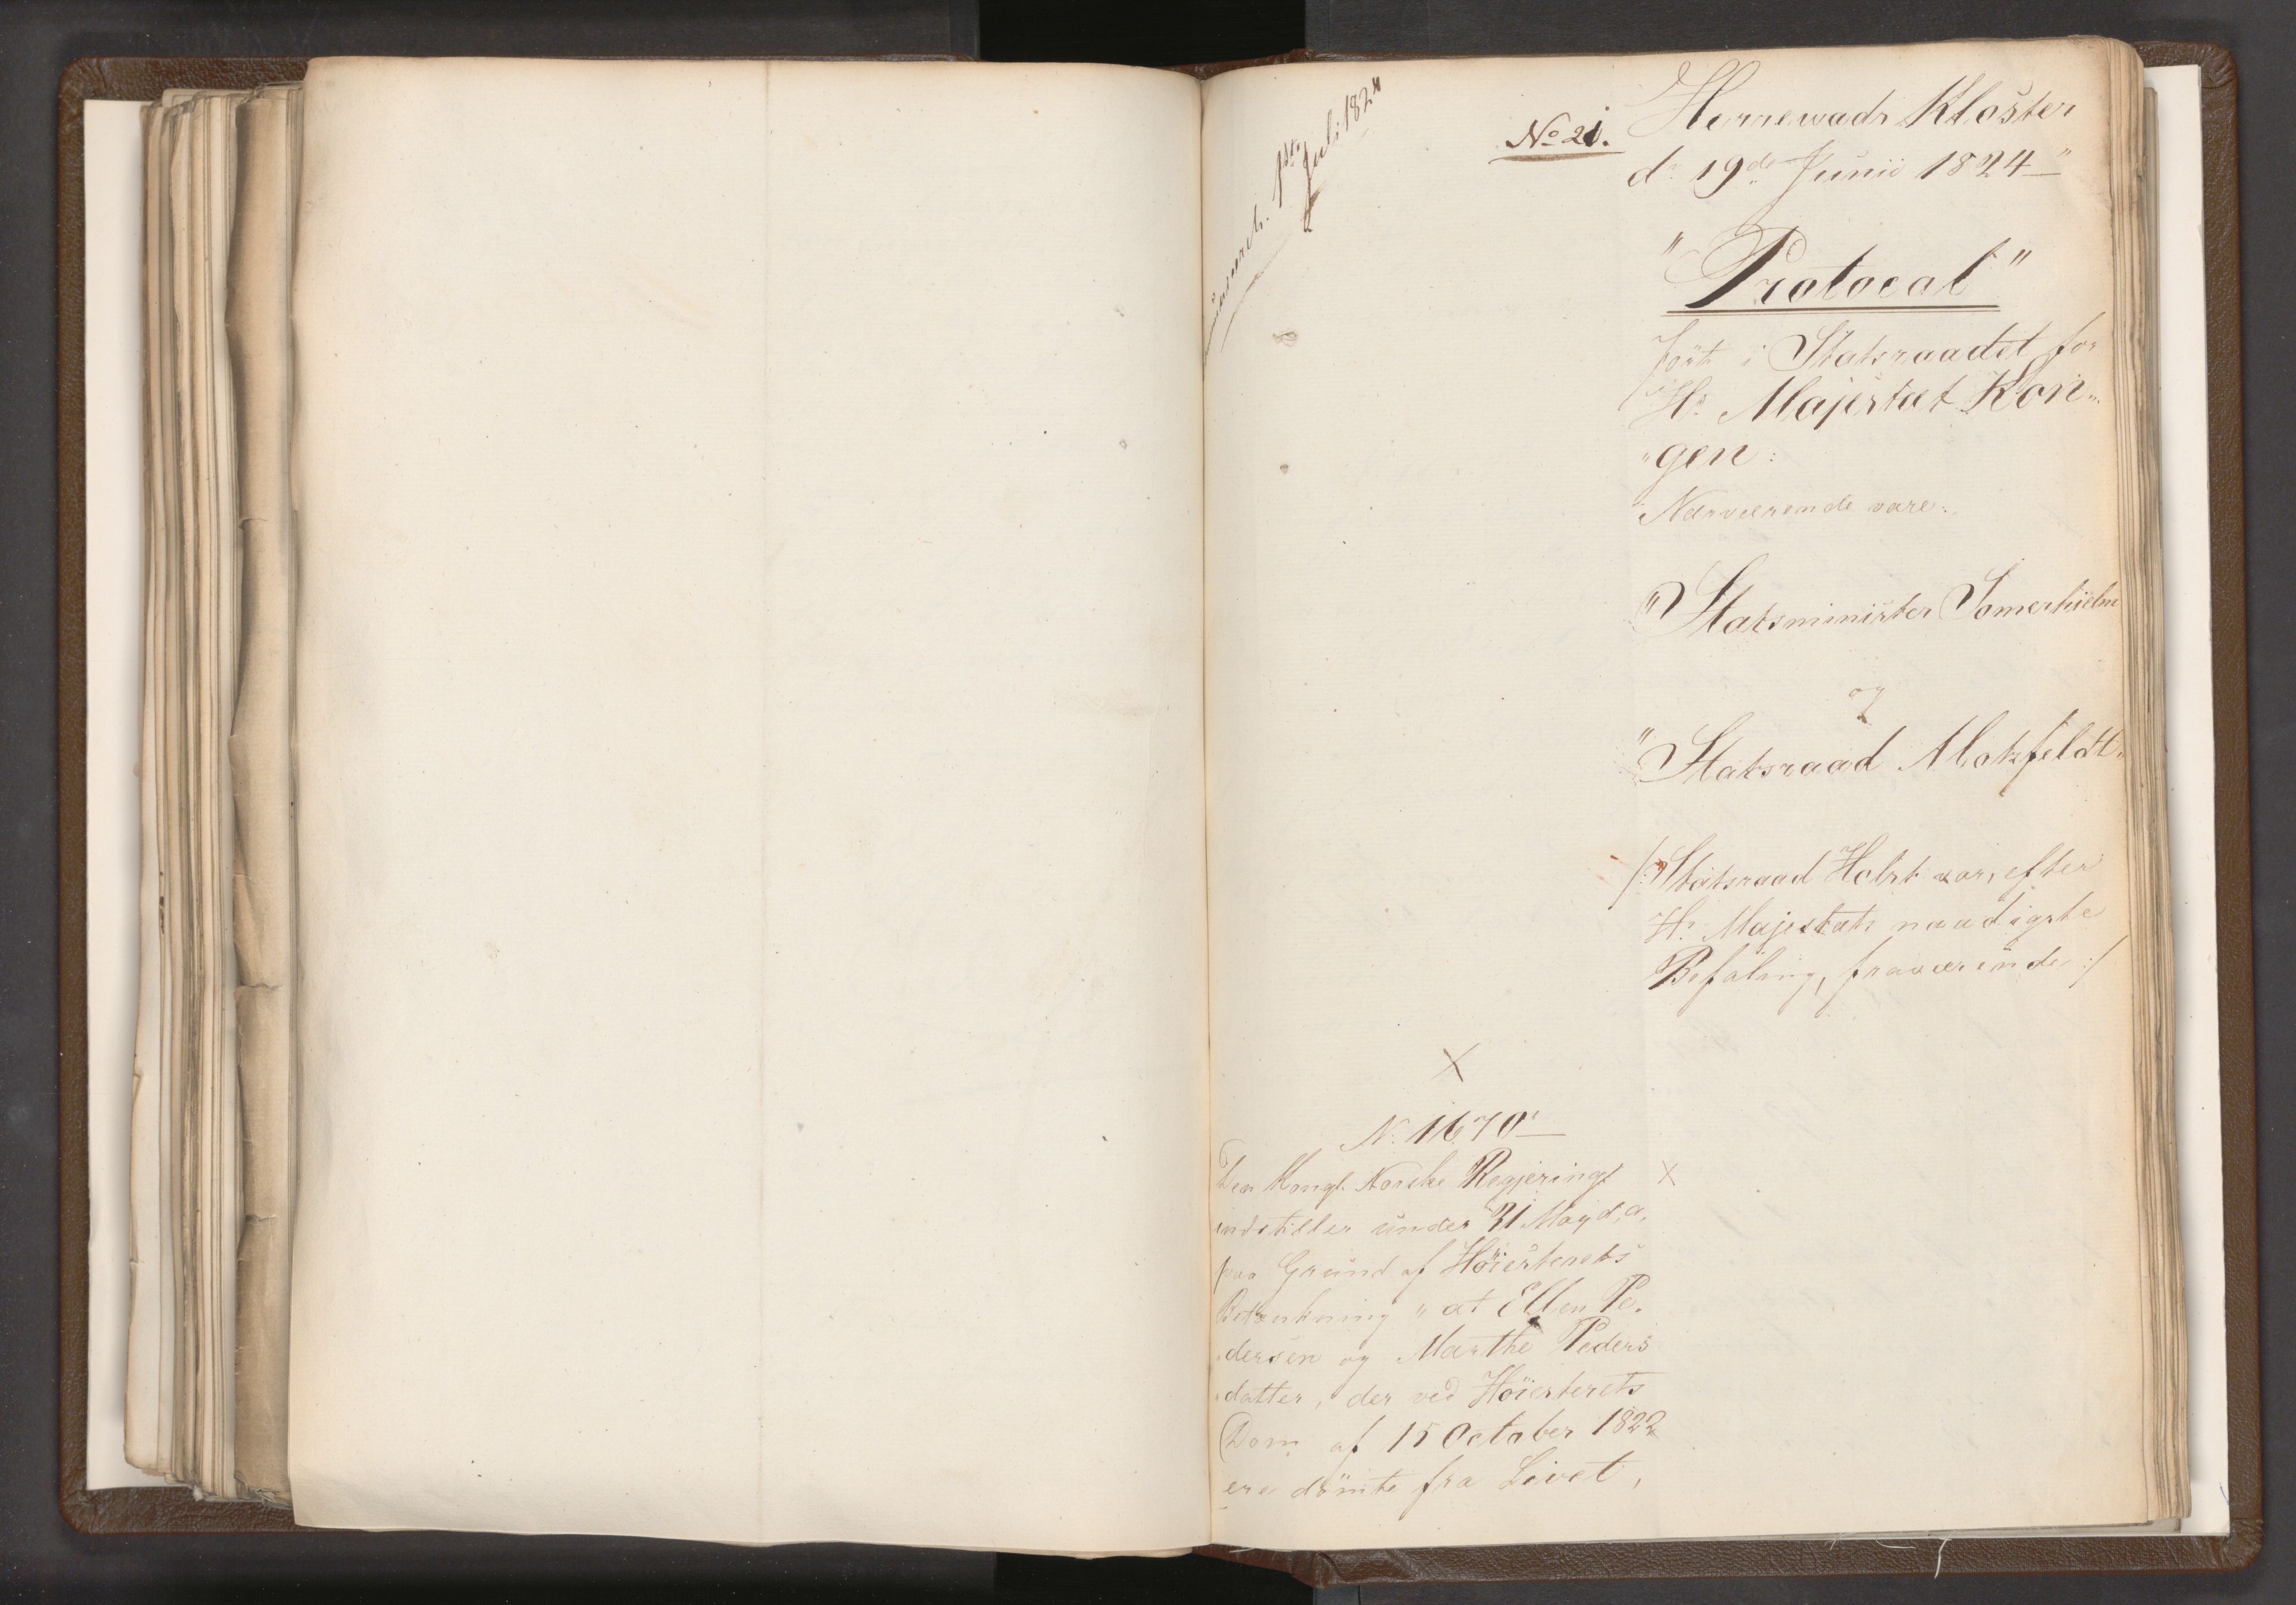 1ste Juli 1824
No 21.
Herrewads Kloster
d. 19de Junii 1824
"Protocol"
fört i Statsraadet for
Hs Majestæt Kon„
„gen:
Nærværende vare:
"Statsminister Somerhielm
og
"Statsraad Motzfeldt„
/: Statsraad Holst var, efter
Hs Majestæts naadigste
Befaling, fraværende :/
X
N. 1670
Den Kongl. Norske Regjering X
indstiller under 31 May d. a.
paa Grund af Höiesterets
Betænkning „at Ellen Pe„
„dersen og Marthe Peders
„datter, der ved Höiesterets
Dom af 15 October 1822
ere dömte fra Livet,